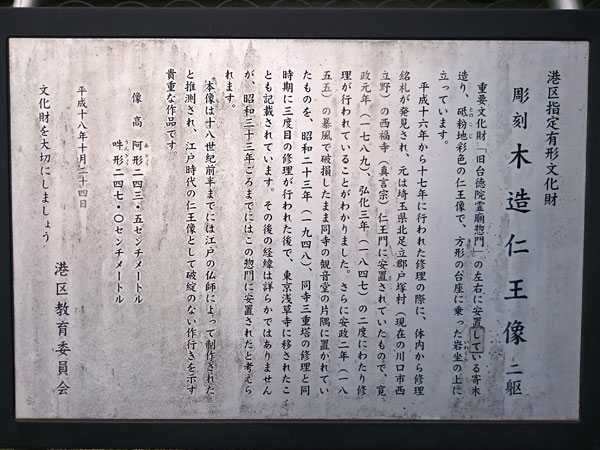 港区指定有形文化財
彫刻 木造仁王像 二躯
重要文化財「旧台徳院霊廟惣門」の左右に安置している寄木
造り、砥粉地彩色の仁王像で、方形の台座に乗った岩坐の上に
立っています。
平成十六年から十七年に行われた修理の際に、体内から修理
銘札が発見され、元は埼玉県北足立郡戸塚村（現在の川口市西
立野）の西福寺（真言宗）仁王門に安置されていたもので、寛
政元年（一七八九）、弘化三年（一八四七）の二度にわたり修
理が行われていることがわかりました。さらに安政二年（一八
五五）の暴風で破損したまま同寺の観音堂の片隅に置かれてい
たものを、昭和二十三年（一九四八）、同寺三重塔の修理と同
時期に三度目の修理が行われた後で、東京浅草寺に移されたこ
とも記載されています。その後の経緯は詳らかではありません
が、昭和三十三年ごろまでにはこの惣門に安置されたと考えら
れます。
本像は十八世紀前半までには江戸の仏師によって制作された
と推測され、江戸時代の仁王像として破綻のない作行きを示す
貴重な作品です。
像高 阿形二四三・五センチメートル
吽形二四七・〇センチメートル
平成十八年十月二十四日
文化財を大切にしましょう
港区教育委員会